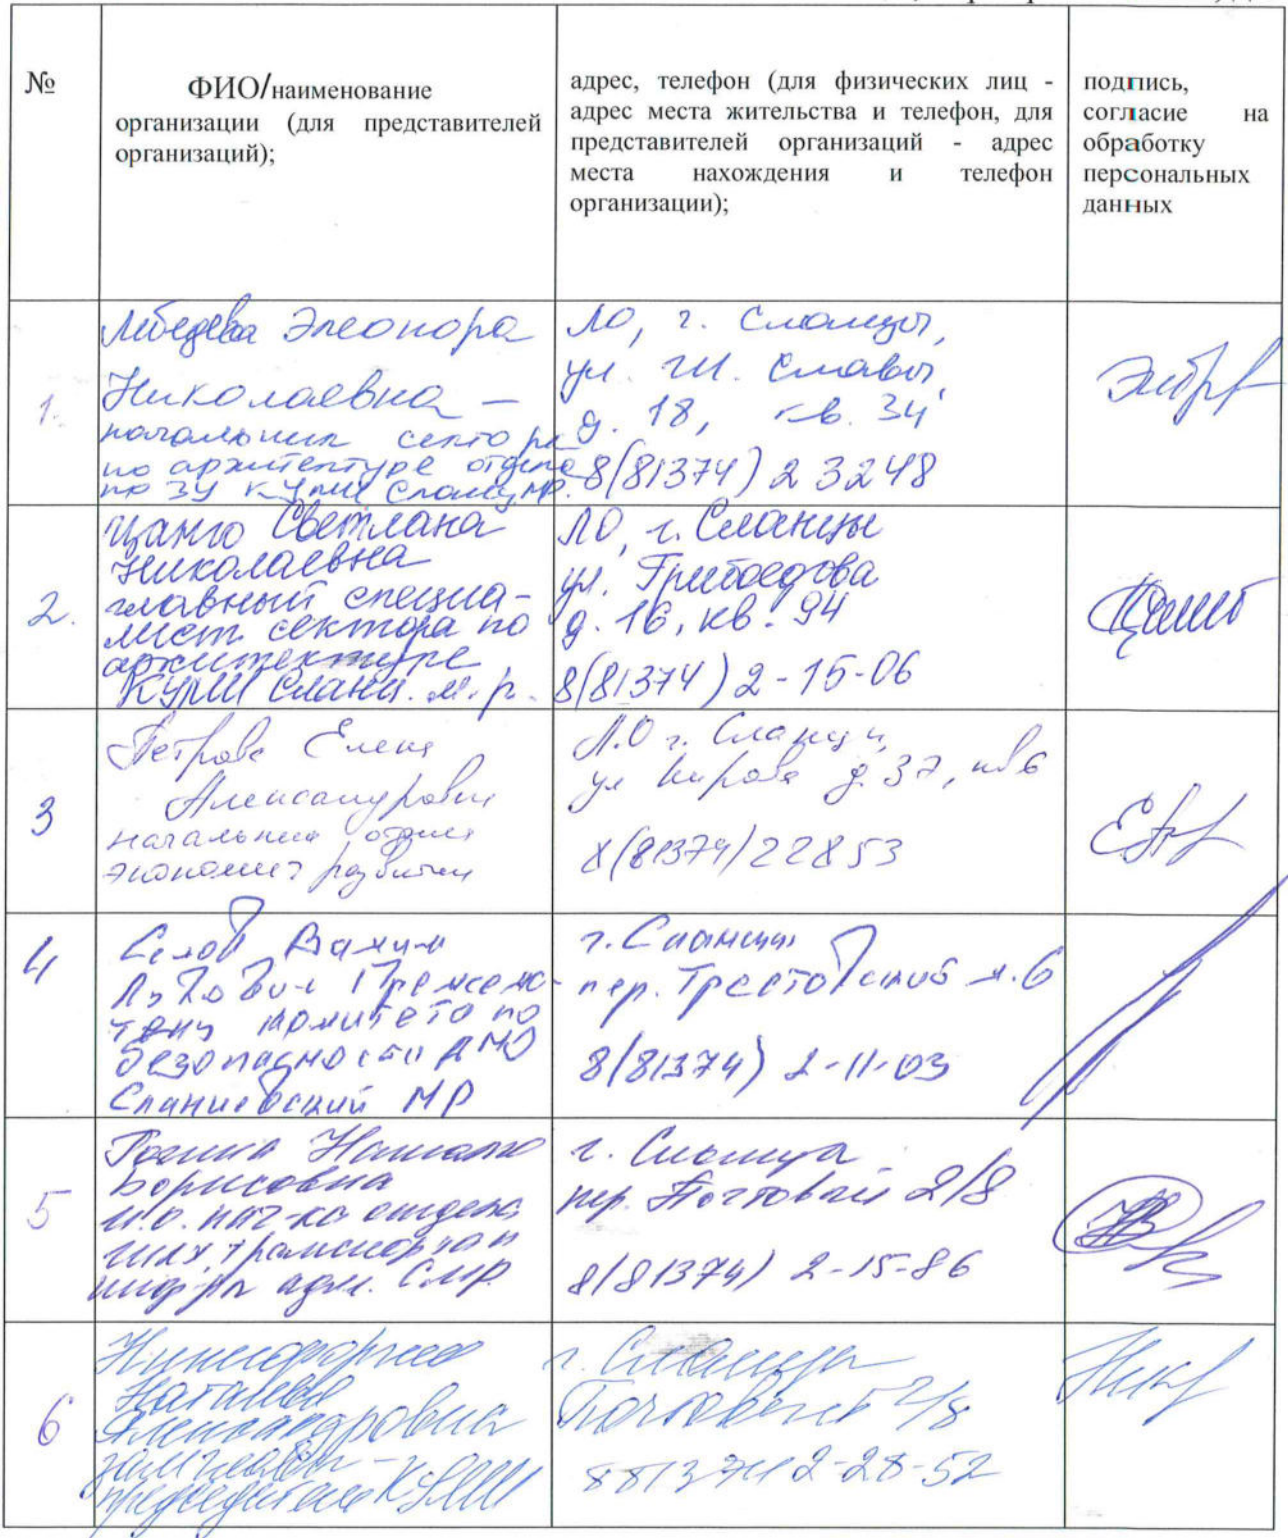 №
ФИО/наименование
организации (для представителей
организаций);
адрес, телефон (для физических лиц -
адрес места жительства и телефон, для
представителей организаций - адрес
места нахождения и телефон
организации);
подпись,
согласие на
обработку
персональных
данных
1.
Лебедева Элеонора
Николаевна -
начальник сектора
по архитектуре отдела
по ЗУ КУМИ Сланц. МР.
ЛО, г. Сланцы,
ул. Ш. Славы,
д. 18, кв. 34
8(81374) 2 3248
2.
Цанго Светлана
Николаевна
главный специа-
лист сектора по
архитектуре
КУМИ Сланц. м. р.
ЛО, г. Сланцы
ул. Грибоедова
д. 16, кв. 94
8(81374) 2-15-06
3
Петрова Елена
Александровна
начальник отдела
развития
Л.О г. Сланцы
ул Кирова д. 37, кв 6
8(81374)22853
4
Вадим
комитета по
безопасности АМО
Сланцевский МР
г. Сланцы
пер. Трестовский д. 6
8(81374) 2-11-03
5
Наталья
Борисовна
и.о. нач-ка отдела
адм. СМР
г. Сланцы
пер. Почтовый 2/8
8(81374) 2-15-86
6
Наталья
Александровна
зам главы -
председатель КУМИ
г. Сланцы
Почтовый 2/8
881374 2-28-52